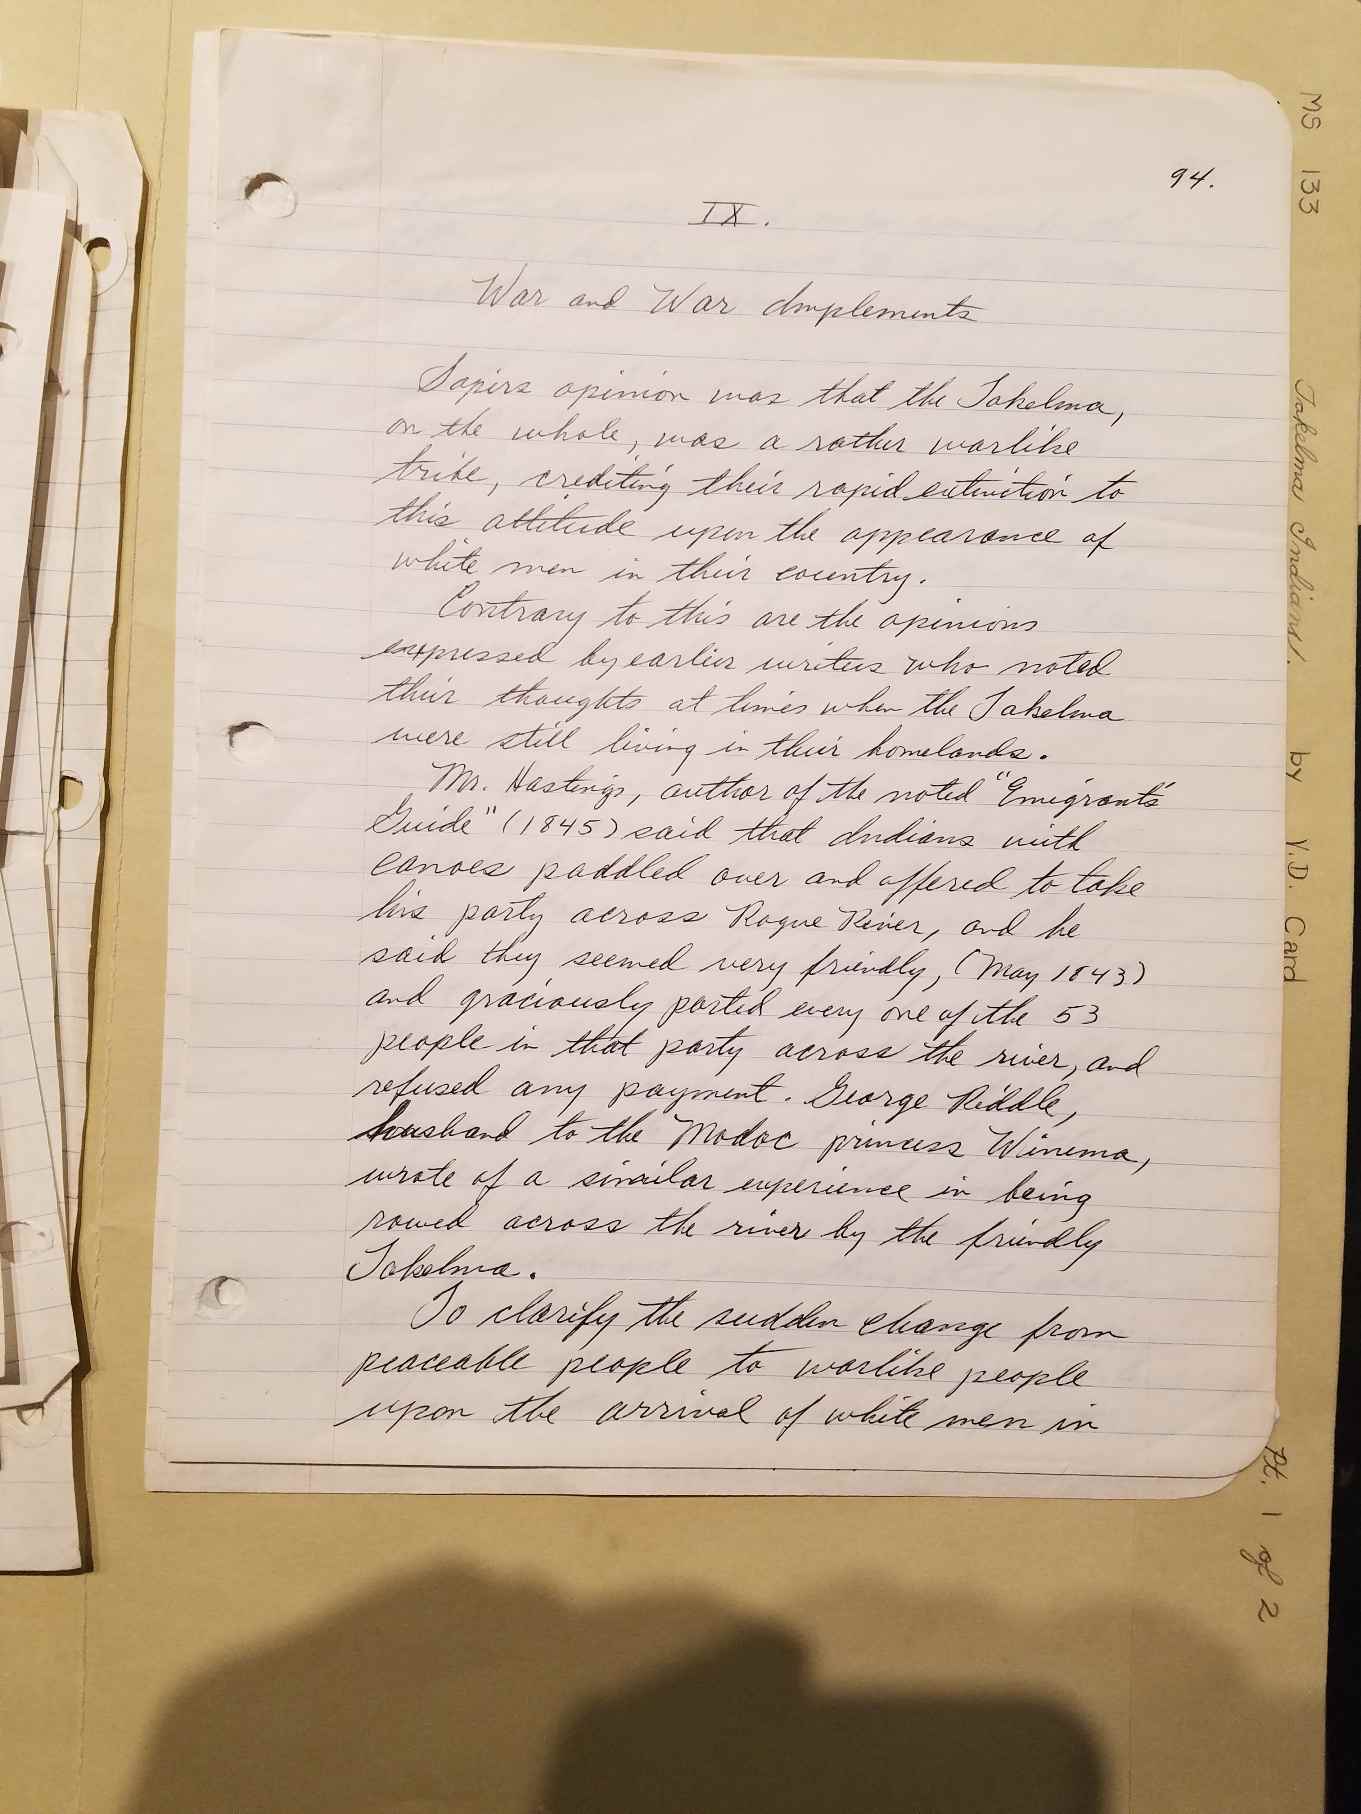 94.
IX.
War and War Implements
Sapirs opinion was that the Takelma,
on the whole, was a rather warlike
tribe, crediting their rapid extinction to
this attitude upon the appearance of
white men in their country.
Contrary to this are the opinions
expressed by earlier writers who noted
their thoughts at times when the Takelma
were still living in their homelands.
Mr. Hastings, author of the noted "Emigrant's
Guide" (1845) said that Indians with
canoes paddled over and offered to take
his party across Rogue River, and he
said they seemed very friendly, (May 1843)
and graciously ported every one of the 53
people in that party across the river, and
refused any payment. George Riddle,
husband to the Modoc princess Winema,
wrote of a similar experience in being
rowed across the river by the friendly
Takelma.
To clarify the sudden change from
peaceable people to warlike people
upon the arrival of white men in
MS 133 Takelma Indians. by Y.D. Card Pt. 1 of 2